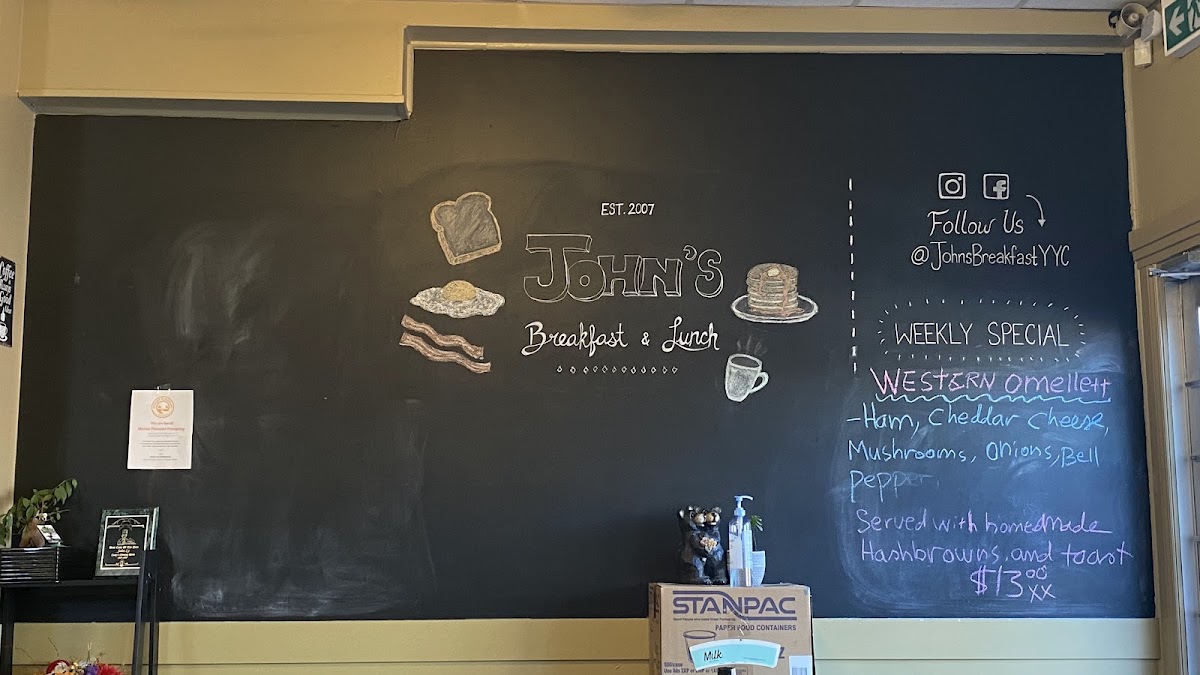 EST. 2007
JOHN'S
Breakfast & Lunch
Follow Us
@JohnsBreakfastYYC
WEEKLY SPECIAL
WESTERN omellett
-Ham, Cheddar cheese,
Mushrooms, onions, Bell
pepper
Served with homedmade
Hashbrowns and toast
$13.00
xx
Coffee
STANPAC
PAPER FOOD CONTAINERS
Milk